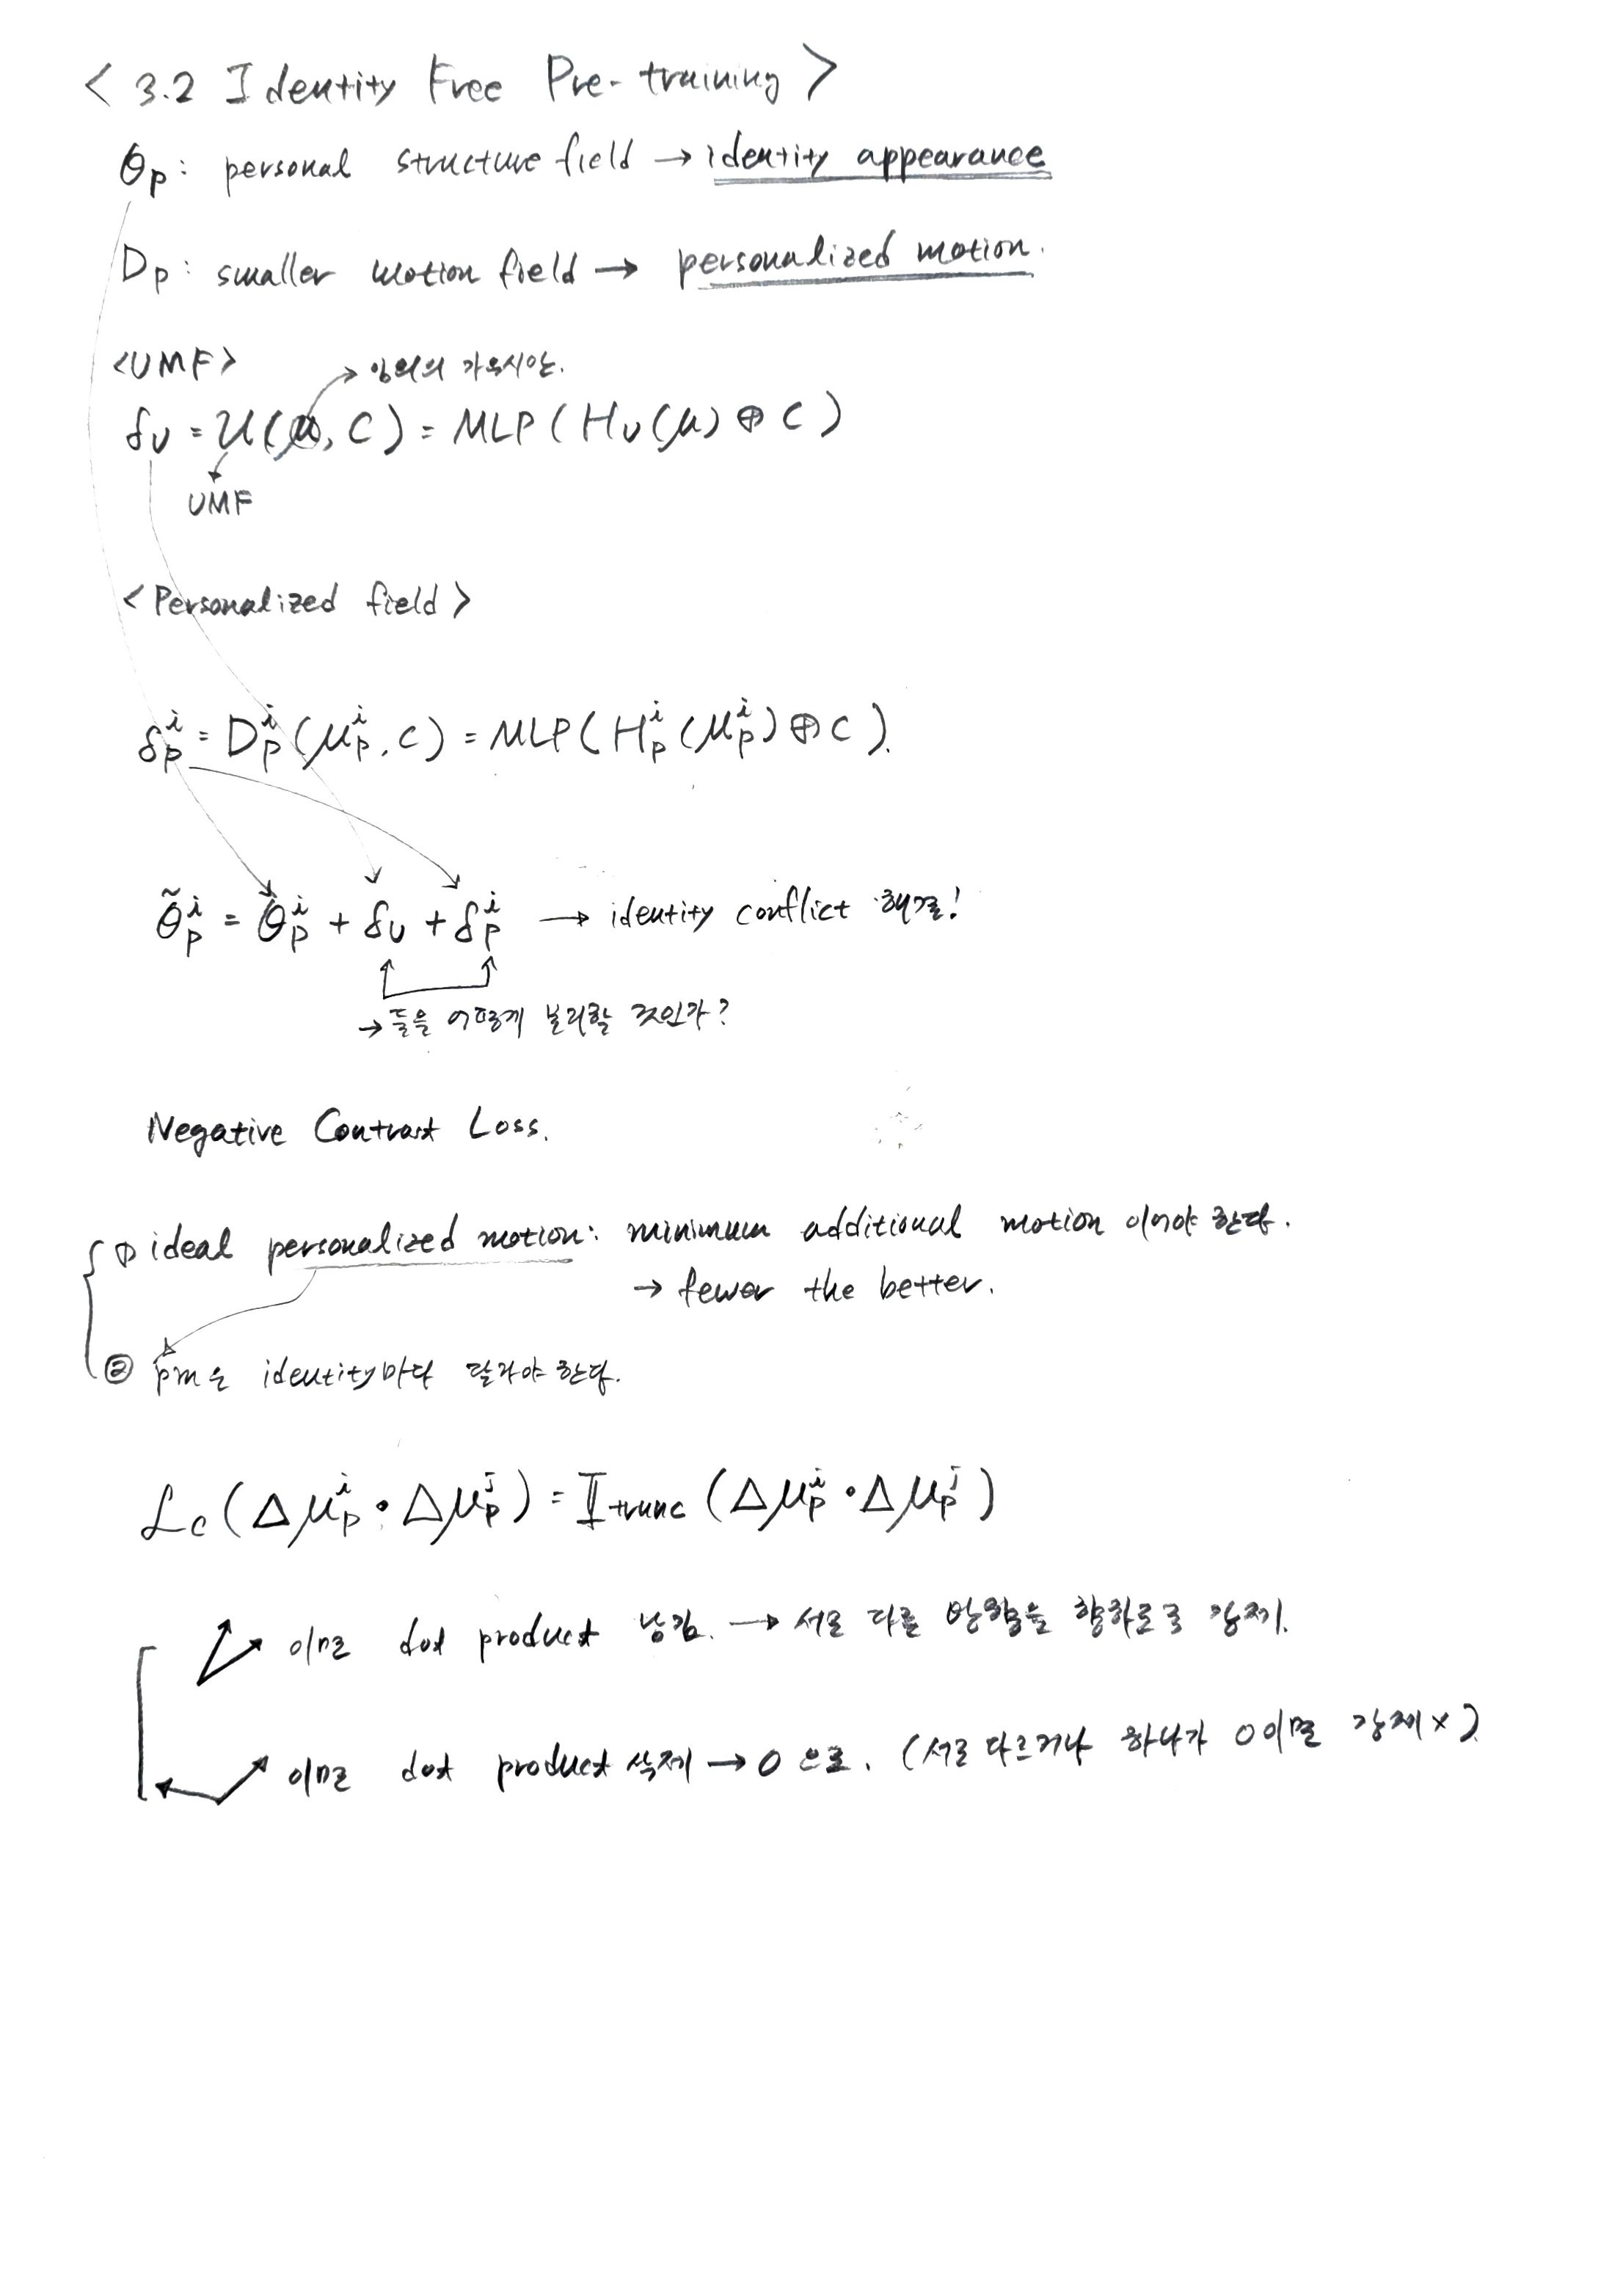 < 3.2 Identity Free Pre-training >
θp : personal structure field → identity appearance
Dp : smaller motion field → personalized motion.
<UMF>
→ 임의의 가우시안.
δU = U(μ, C) = MLP(HU(μ) ⊕ C)
UMF
< Personalized field >
δp^i = Dp^i(μp^i, C) = MLP(Hp^i(μp^i) ⊕ C).
θ̃p^i = θp^i + δU + δp^i → identity conflict 해결!
→ 둘을 어떻게 분리할 것인가?
Negative Contrast Loss.
① ideal personalized motion: minimum additional motion 이어야 한다.
→ fewer the better.
② pm은 identity마다 달라야 한다.
Lc(Δμp^i · Δμp^j) = 𝕀trunc(Δμp^i · Δμp^j)
이면 dot product 남김. → 서로 다른 방향을 향하도록 강제.
이면 dot product 삭제 → 0 으로. (서로 다르거나 하나가 0이면 강제 x)